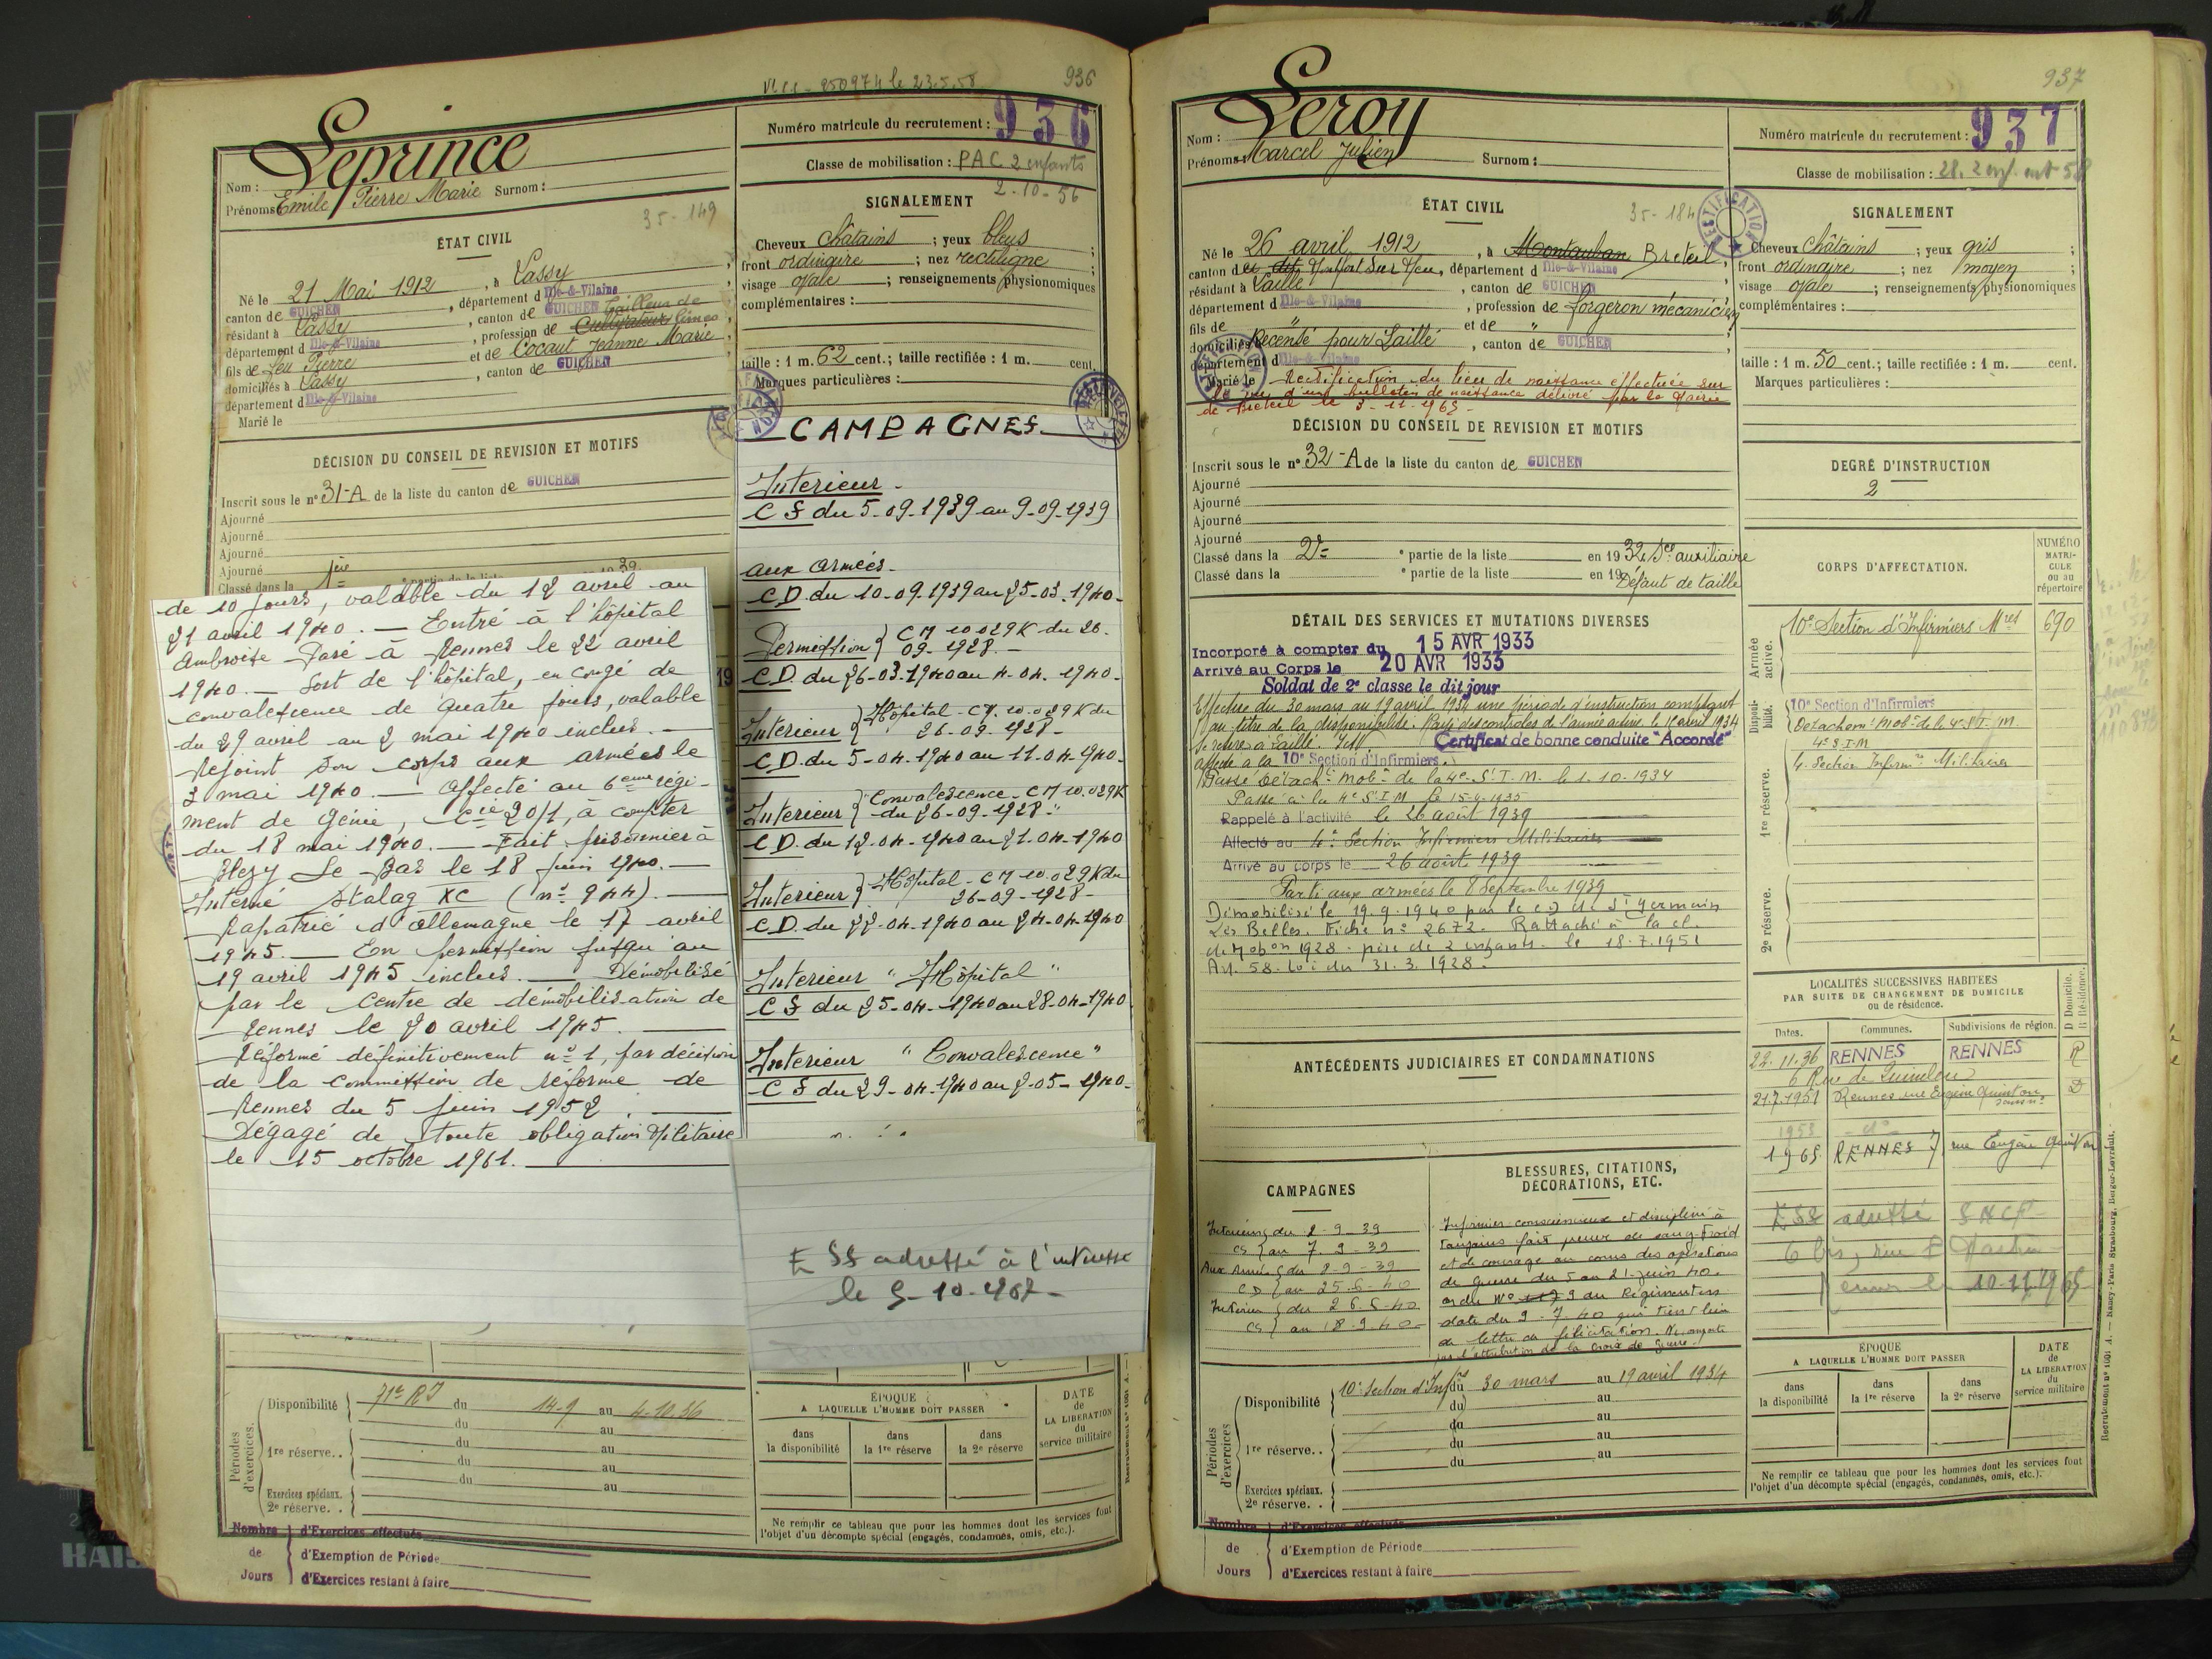 Vt CC - 950974 le 23.5.58
936
Leprince
Numéro matricule du recrutement : 936
Nom :
Prénoms : Emile Pierre Marie Surnom :
Classe de mobilisation : PAC 2 enfants
2-10-56
35-149
ÉTAT CIVIL
Né le 21 Mai 1912, à Lassy,
canton de GUICHEN, département d Ille-&-Vilaine
résidant à Lassy, canton de GUICHEN Tailleur de
département d Ille-&-Vilaine, profession de Cultivateur limes,
fils de feu Pierre et de Cocaut Jeanne Marie
domiciliés à Lassy, canton de GUICHEN
département d Ille-&-Vilaine
Marié le
SIGNALEMENT
Cheveux châtains ; yeux bleus ;
front ordinaire ; nez rectiligne ;
visage ovale ; renseignements physionomiques
complémentaires :
taille : 1 m. 62 cent. ; taille rectifiée : 1 m. cent.
Marques particulières :
DÉCISION DU CONSEIL DE REVISION ET MOTIFS
Inscrit sous le nº 31-A de la liste du canton de GUICHEN
Ajourné
Ajourné
Ajourné
Ajourné
Classé dans la 1ère
de 10 jours, valable du 12 avril au
21 avril 1940. — Entré à l'hôpital
Ambroise Paré à Rennes le 22 avril
1940. — Sort de l'hôpital, en congé de
convalescence de quatre jours, valable
du 29 avril au 2 mai 1940 inclus. —
Rejoint son corps aux armées le
3 mai 1940. — Affecté au 6ème régi-
ment de Génie, Cie 20/1, à compter
du 18 mai 1940. — Fait prisonnier à
Le Bas le 18 juin 1940. —
Interné Stalag XC (nº 944). —
Rapatrié d'Allemagne le 17 avril
1945. — En permission jusqu'au
19 avril 1945 inclus. — Démobilisé
par le Centre de démobilisation de
Rennes le 20 avril 1945. —
Réformé définitivement nº 1, par décision
de la commission de réforme de
Rennes du 5 juin 1952. —
Dégagé de toute obligation Militaire
le 15 octobre 1961. —
CAMPAGNES
Interieur -
CS du 5-09-1939 au 9-09-1939
aux armées -
C.D. du 10-09-1939 au 25-03-1940-
Permission } CM 10029K du 26-
09-1928. -
C.D. du 26-03-1940 au 4-04-1940-
Interieur } Hôpital - CM 10.029K du
26-09-1928 -
C.D. du 5-04-1940 au 11-04-1940-
Interieur } "Convalescence - CM 10.029K
du 26-09-1928."
C.D. du 12-04-1940 au 21-04-1940
Interieur } Hôpital - CM 10.029K du
26-09-1928-
C.D. du 22-04-1940 au 24-04-1940
Interieur "Hôpital"
CS du 25-04-1940 au 28-04-1940
Interieur "Convalescence"
CS du 29-04-1940 au 2-05-1940-
ESS adressé à l'intéressé
le
Périodes d'exercices.
Disponibilité 71e RI du 14-9 au 4-10.36
du au
1re réserve.. du au
du au
du au
Exercices spéciaux. au
2e réserve. .
ÉPOQUE
A LAQUELLE L'HOMME DOIT PASSER
dans la disponibilité
dans la 1re réserve
dans la 2e réserve
DATE de LA LIBÉRATION du service militaire
Ne remplir ce tableau que pour les hommes dont les services font
l'objet d'un décompte spécial (engagés, condamnés, omis, etc.).
Nombre de Jours
d'Exercices effectués
d'Exemption de Période
d'Exercices restant à faire
937
Leroy
Numéro matricule du recrutement : 937
Nom :
Prénoms : Marcel Julien Surnom :
Classe de mobilisation : 28. 2 enf.
35-184
RECTIFICATION
ÉTAT CIVIL
Né le 26 avril 1912, à Montauban Breteil,
canton de Montfort sur Meu, département d Ille-&-Vilaine
résidant à Laillé, canton de GUICHEN
département d Ille-&-Vilaine, profession de forgeron mécanicien
fils de " et de "
domiciliés Recensé pour Laillé, canton de GUICHEN
département d Ille-&-Vilaine
Marié le Rectification du lieu de naissance effectuée sur
le vu d'un bulletin de naissance délivré par la Mairie
de Breteil le 3-11-1965-
SIGNALEMENT
Cheveux châtains ; yeux gris ;
front ordinaire ; nez moyen ;
visage ovale ; renseignements physionomiques
complémentaires :
taille : 1 m. 50 cent. ; taille rectifiée : 1 m. cent.
Marques particulières :
DÉCISION DU CONSEIL DE REVISION ET MOTIFS
Inscrit sous le nº 32-A de la liste du canton de GUICHEN
Ajourné
Ajourné
Ajourné
Ajourné
Classé dans la 2e e partie de la liste en 1932 Sce auxiliaire
Classé dans la e partie de la liste en 19 Défaut de taille
DEGRÉ D'INSTRUCTION
2
DÉTAIL DES SERVICES ET MUTATIONS DIVERSES
Incorporé à compter du 15 AVR 1933
Arrivé au Corps le 20 AVR 1933
Soldat de 2e classe le dit jour
Effectue du 30 mars au 19 avril 1934 une période d'instruction comptant
au titre de la disponibilité. Rayé des contrôles de l'armée active le 15 avril 1934
Se retire à Laillé. Certificat de bonne conduite "Accordé"
affecté à la 10e Section d'Infirmiers.
Passé Détacht Mobre de la 4e S.I.M. le 1.10.1934
Passé à la 4e S.I.M. le 15-4-1935
Rappelé à l'activité le 26 août 1939
Affecté au 4e Section Infirmiers Militaires
Arrivé au corps le 26 août 1939
Parti aux armées le 8 Septembre 1939
Démobilisé le 19.9.1940 par le CD de St Germain
Les Belles. Fiche nº 2672. Rattaché à la cl.
de Mobon 1928 - père de 2 enfants - le 18.7.1951
Art. 58. Loi du 31.3.1928.
CORPS D'AFFECTATION.
NUMÉRO MATRICULE ou au répertoire
Armée active.
10e Section d'Infirmiers Mres 690
Disponibilité.
10e Section d'Infirmiers
Détachemt Mobre de la 4e S.I.M.
1re réserve.
4e S.I.M
4e Section Infirmrs Militaires
2e réserve.
LOCALITÉS SUCCESSIVES HABITÉES
PAR SUITE DE CHANGEMENT DE DOMICILE
ou de résidence.
Dates. Communes. Subdivisions de région. D Domicile. R Résidence.
22.11.36 RENNES RENNES R
21.7.1951 Rennes rue Eugène Quinton D
1953 - dº
1965 RENNES 7, rue Eugène Quinton
ESS adressé SNCF
10-11-1965
ANTÉCÉDENTS JUDICIAIRES ET CONDAMNATIONS
CAMPAGNES
Intérieur du 2-9-39
CS au 7-9-39
Aux Armées du 8-9-39
CD au 25.6-40
Intérieur du 26.6-40
CS au 18-9-40
BLESSURES, CITATIONS, DÉCORATIONS, ETC.
Infirmier consciencieux et discipliné à
toujours fait preuve de sang-froid
et de courage au cours des opérations
de guerre du 5 au 21-juin 40.
ordre Nº 9 du Régiment en
date du 9-7-40 qui tient lieu
de lettre de félicitation. Ne comporte
pas l'attribution de la croix de guerre.
Périodes d'exercices
Disponibilité 10e Section d'Infres du 30 mars au 19 avril 1934
du au
du au
1re réserve.. du au
du au
Exercices spéciaux.
2e réserve. .
ÉPOQUE
A LAQUELLE L'HOMME DOIT PASSER
dans la disponibilité
dans la 1re réserve
dans la 2e réserve
DATE de LA LIBÉRATION du service militaire
Ne remplir ce tableau que pour les hommes dont les services font
l'objet d'un décompte spécial (engagés, condamnés, omis, etc.).
Nombre de Jours
d'Exercices effectués
d'Exemption de Période
d'Exercices restant à faire
Recrutement nº 1001 A. — Nancy-Paris-Strasbourg, Berger-Levrault.